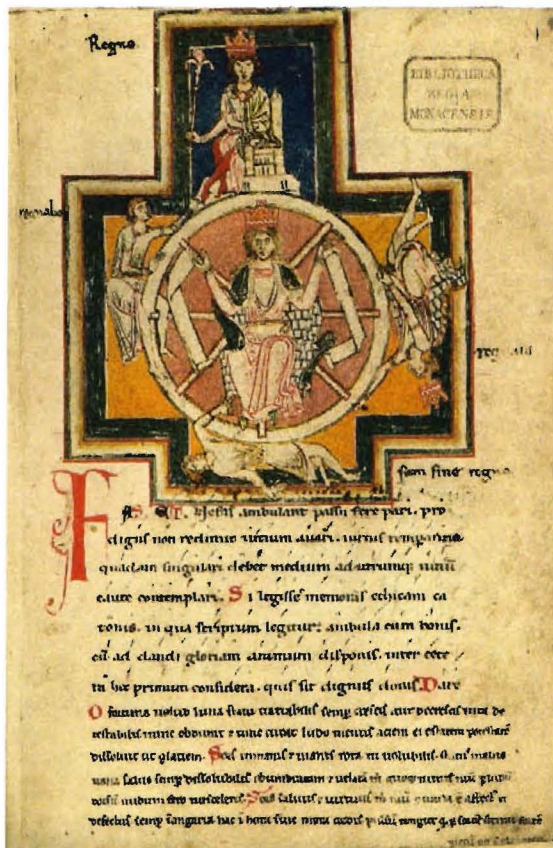 Regno
BIBLIOTHECA
REGIA
MONACENSIS
regnabo
regnaui
sum sine regno
FAS ET Nefas ambulant passu fere pari. pro
digus non redimit uitium auari. uirtus temperantia
quadam singulari debet medium ad utrumq; uitiū
caute contemplari. Si legisse memoras ethicam ca
tonis. in qua scriptum legitur: ambula cum bonis.
cū ad dandi gloriam animum disponis. inter cete
ra hoc primum considera. quis sit dignus donis. Dare
O fortuna uelud luna statu uariabilis semp crescis aut decrescis uita de
testabilis nunc obdurat & tunc curat ludo mentis aciem egestatem potestatē
dissoluit ut glaciem. Sors inmanis & inanis rota tu uolubilis. status malus
uana salus semp dissolubilis obumbratam & uelatam
dorsum nudum fero Sors salutis & uirtutis
defectus semp in angaria hac in hora sine mora